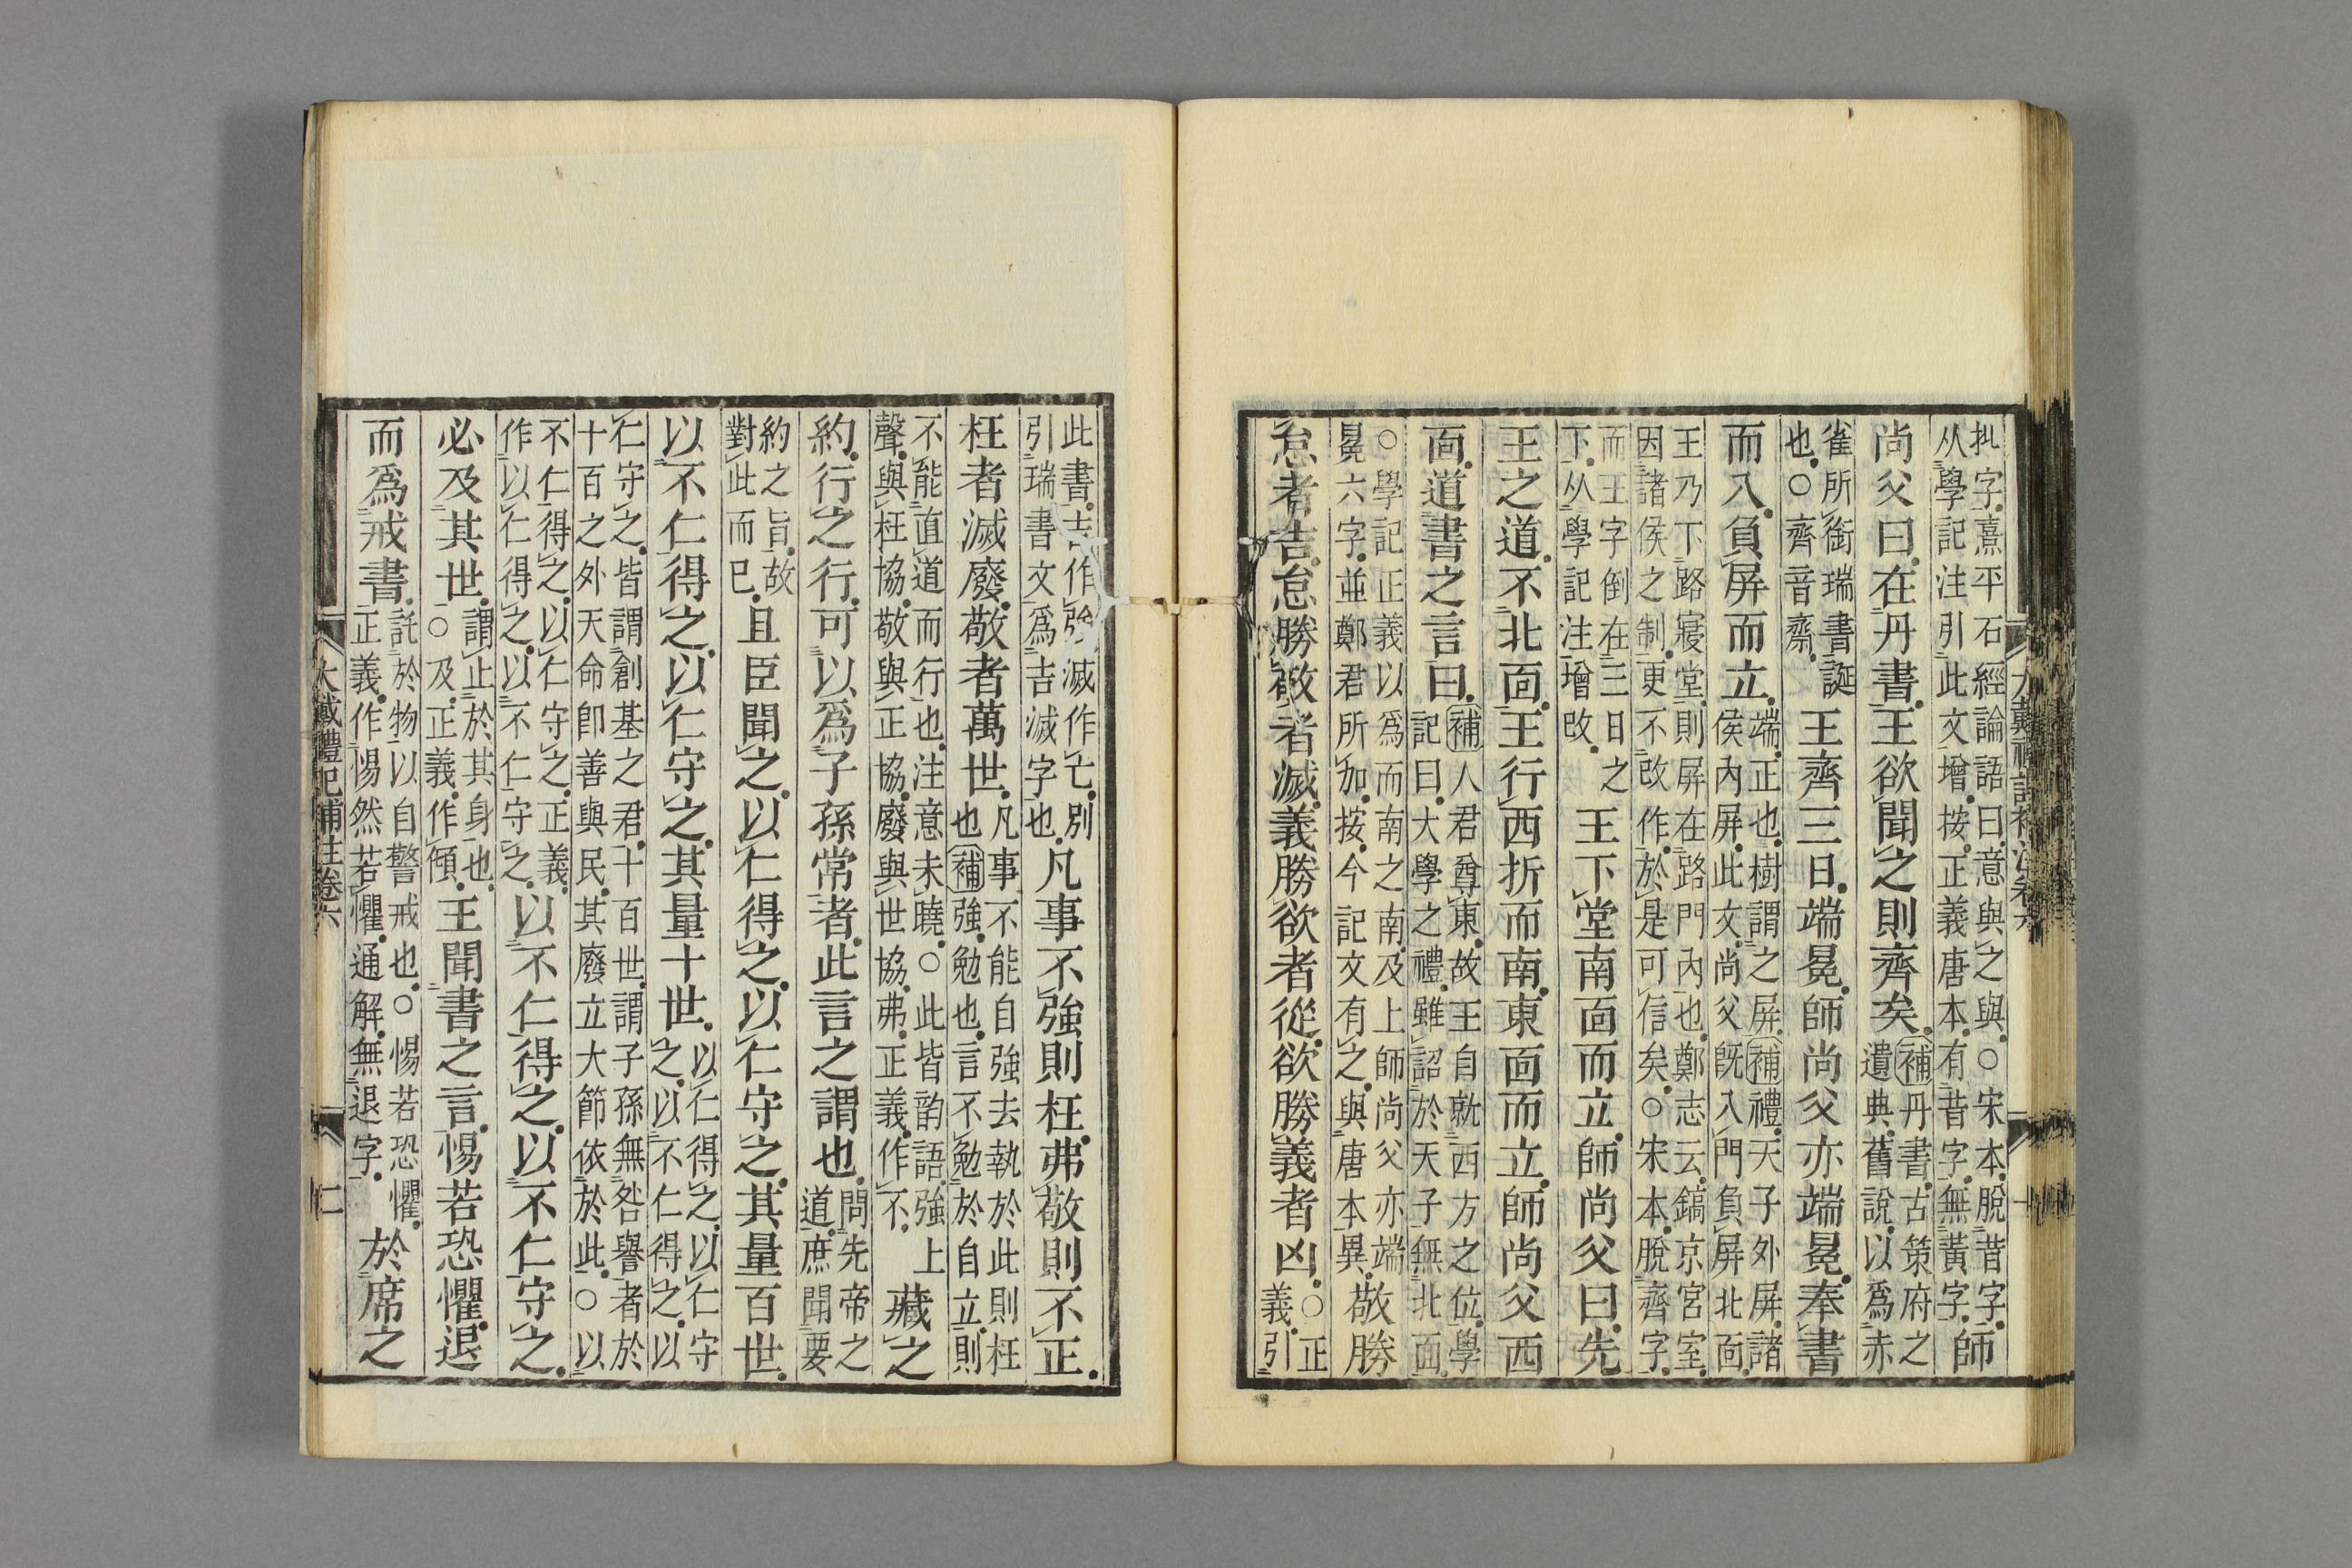 抋字熹平石經論語曰意與之與○宋本脫昔字
从學記注引此文增按正義唐本有昔字無黃字師
尚父曰在丹書王欲聞之則齊矣補丹書古策府之
遺典舊說以爲赤
雀所銜瑞書誕
也○齊音齋王齊三日端冕師尚父亦端冕奉書
而入負屏而立端正也樹謂之屏補禮天子外屏諸
侯內屏此文尚父旣入門負屏北面
王乃下路寢堂則屏在路門內也鄭志云鎬京宮室
因諸侯之制更不改作於是可信矣○宋本脫齊字
而王字倒在三日之
下从學記注增改王下堂南面而立師尚父曰先
王之道不北面王行西折而南東面而立師尚父西
面道書之言曰補人君尊東故王自就西方之位學
記曰大學之禮雖詔於天子無北面
○學記正義以爲而南之南及上師尚父亦端
冕六字並鄭君所加按今記文有之與唐本異敬勝
怠者吉怠勝敬者滅義勝欲者從欲勝義者凶○正
義引
此書吉作強滅作亡別
引瑞書文爲吉滅字也凡事不強則枉弗敬則不正
枉者滅廢敬者萬世凡事不能自強去執於此則枉
也補強勉也言不勉於自立則
不能直道而行也注意未曉○此皆韵語強上
聲與枉協敬與正協廢與世協弗正義作不藏之
約行之行可以爲子孫常者此言之謂也問先帝之
道庶聞要
約之旨故
對此而已且臣聞之以仁得之以仁守之其量百世
以不仁得之以仁守之其量十世以仁得之以仁守
之以不仁得之以
仁守之皆謂創基之君十百世謂子孫無咎譽者於
十百之外天命卽善與民其廢立大節依於此○以
不仁得之以仁守之正義
作以仁得之以不仁守之以不仁得之以不仁守之
必及其世謂止於其身也
○及正義作傾王聞書之言惕若恐懼退
而爲戒書託於物以自警戒也○惕若恐懼
正義作惕然若懼通解無退字於席之
大戴禮記補注卷六
二